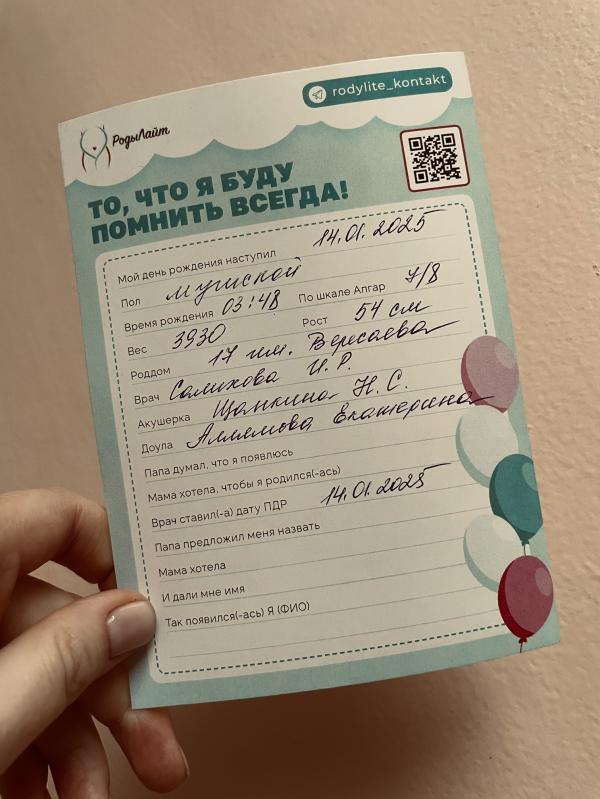 rodylite_kontakt
РодыЛайт
ТО, ЧТО Я БУДУ
ПОМНИТЬ ВСЕГДА!
Мой день рождения наступил 14.01.2025
Пол мужской
Время рождения 03:48 По шкале Апгар 7/8
Вес 3930 Рост 54 см
Роддом 17 им. Вересаева
Врач Салихова И.Р.
Акушерка Щанкина Н.С.
Доула Аллямова Екатерина
Папа думал, что я появлюсь
Мама хотела, чтобы я родился(-ась)
Врач ставил(-а) дату ПДР 14.01.2025
Папа предложил меня назвать
Мама хотела
И дали мне имя
Так появился(-ась) Я (ФИО)